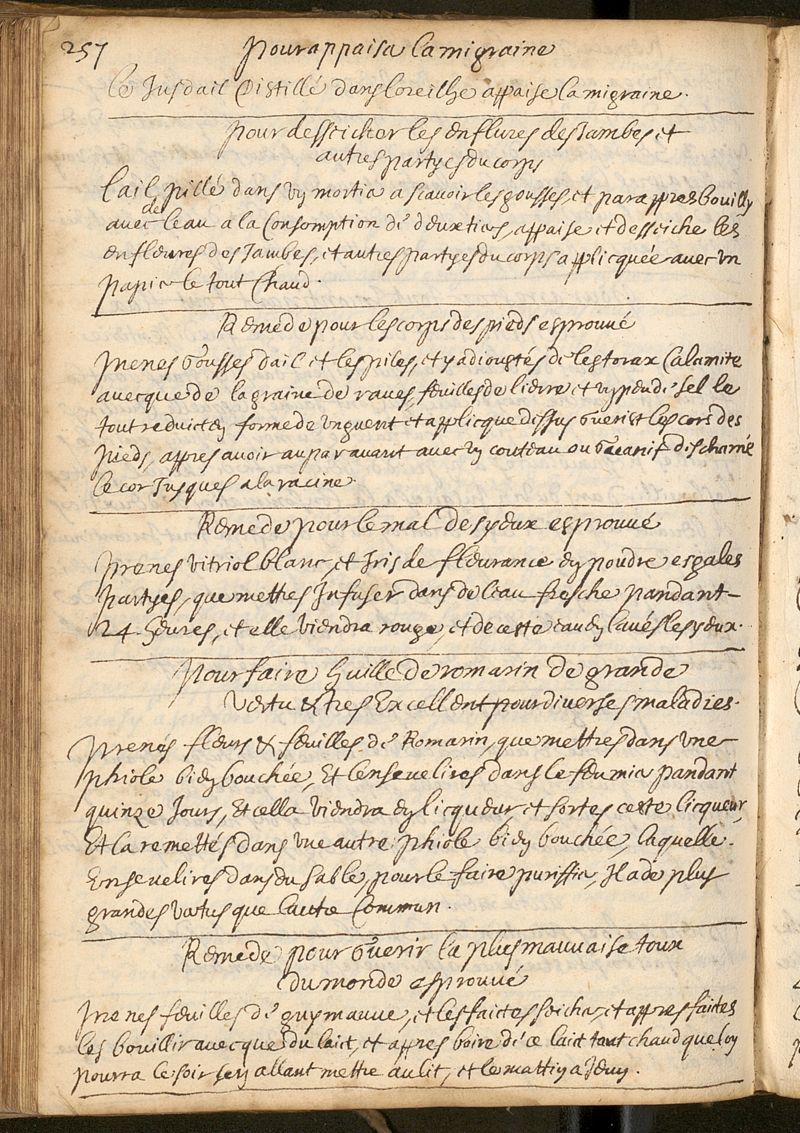 257
Pour appaiser la migraine
le Jus dail Distillé dans loreilhe appaise la migraine.
pour desseicher les enflures des Jambes et
autres partyes du corps
Lail pillé dans un mortier a scavoir les gousses, et par appres bouilly
avec de leau a la Consomption de deux tiers, appaise et desseiche les
enfleures des Jambes, et autres partyes du corps applicquée avec un
papier le tout Chaud.
Remede pour les corps des pieds esprouvé
Prenes Gousses dail et les piles, et y adioustés de lestorax Calamite
avecque de la graine de raves, feuilles de lierre et un peu de sel le
tout reduict en forme de unguent et applicque dessus Guerist les cors des
pieds, appres avoir auparavant avec un couteau ou Ganif discharné
le cor Jusques a la racine.
Remede pour le mal des yeux esprouvé
Prenes vitriol blanc, et Iris de fleurance en poudre esgales
partyes, que mettres Infuser dans de leau fresche pandant
24 heures, et elle viendra rouge, et de ceste eau en lavés les yeux.
Pour faire huille de romarin de grande
vertu & tres Excellent pour diverses maladies.
Prenés fleurs & feuilles de Romarin, que mettres dans une
phiole bien bouchée, Et lensevelires dans le feumier pandant
quinze Jours, Et cella viendra en licqueur et sortes ceste licqueur,
Et la remettés dans une autre phiole bien bouchée, laquelle
Ensevelires dans du sable, pour le faire puriffier, Il a de plus
grandes vertus que lautre Commun.
Remede pour Guerir la plus mauvaise toux
du monde esprouvé
Prenes feuilles de guymauve, et les faictes seicher, et appres faites
les bouillir avecque du laict, et appres boire de ce laict tout chaud que lon
pourra le soir sen allant mettre au lit, et le mattin a Jeun.